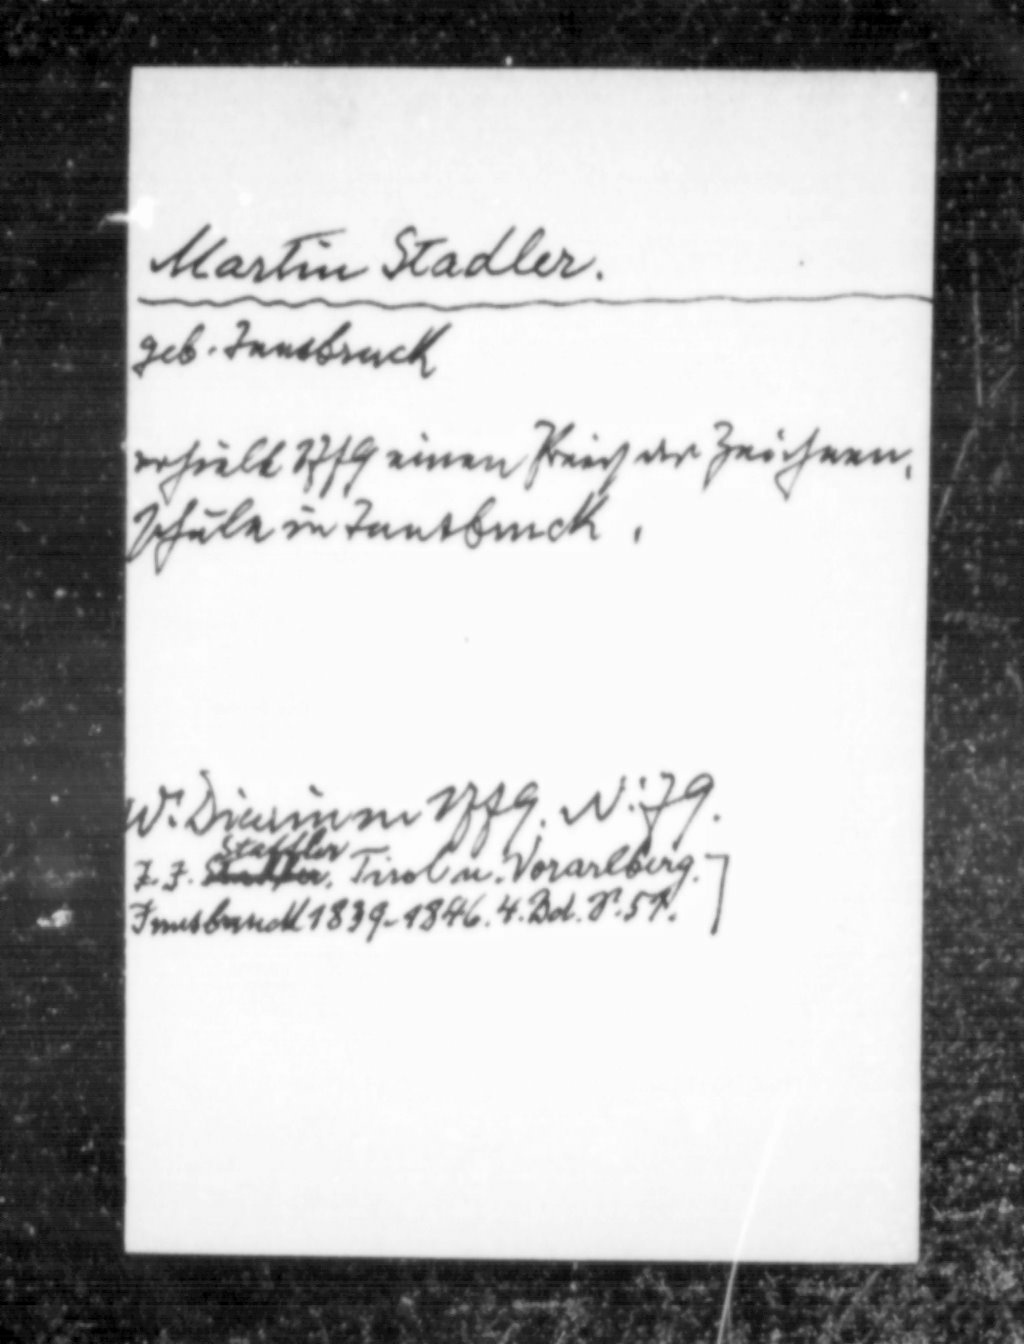 Martin Stadler.
geb. Innsbruck
erhielt 1779 einen Preis der Zeichnen,
schule in Innsbruck.
W. Diarium 1779. N: 79.
Staffler
J. J. Tirol u. Vorarlberg.
Innsbruck 1839-1846. 4. Bd. S. 51.